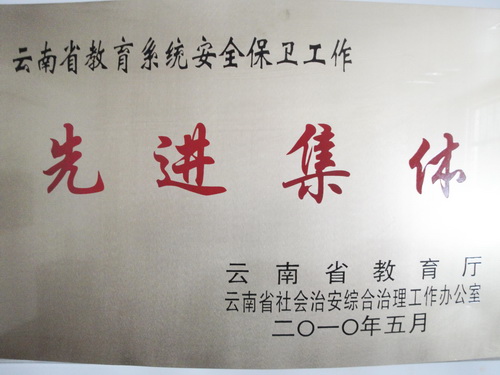 云南省教育系统安全保卫工作
先进集体
云南省教育厅
云南省社会治安综合治理工作办公室
二〇一〇年五月